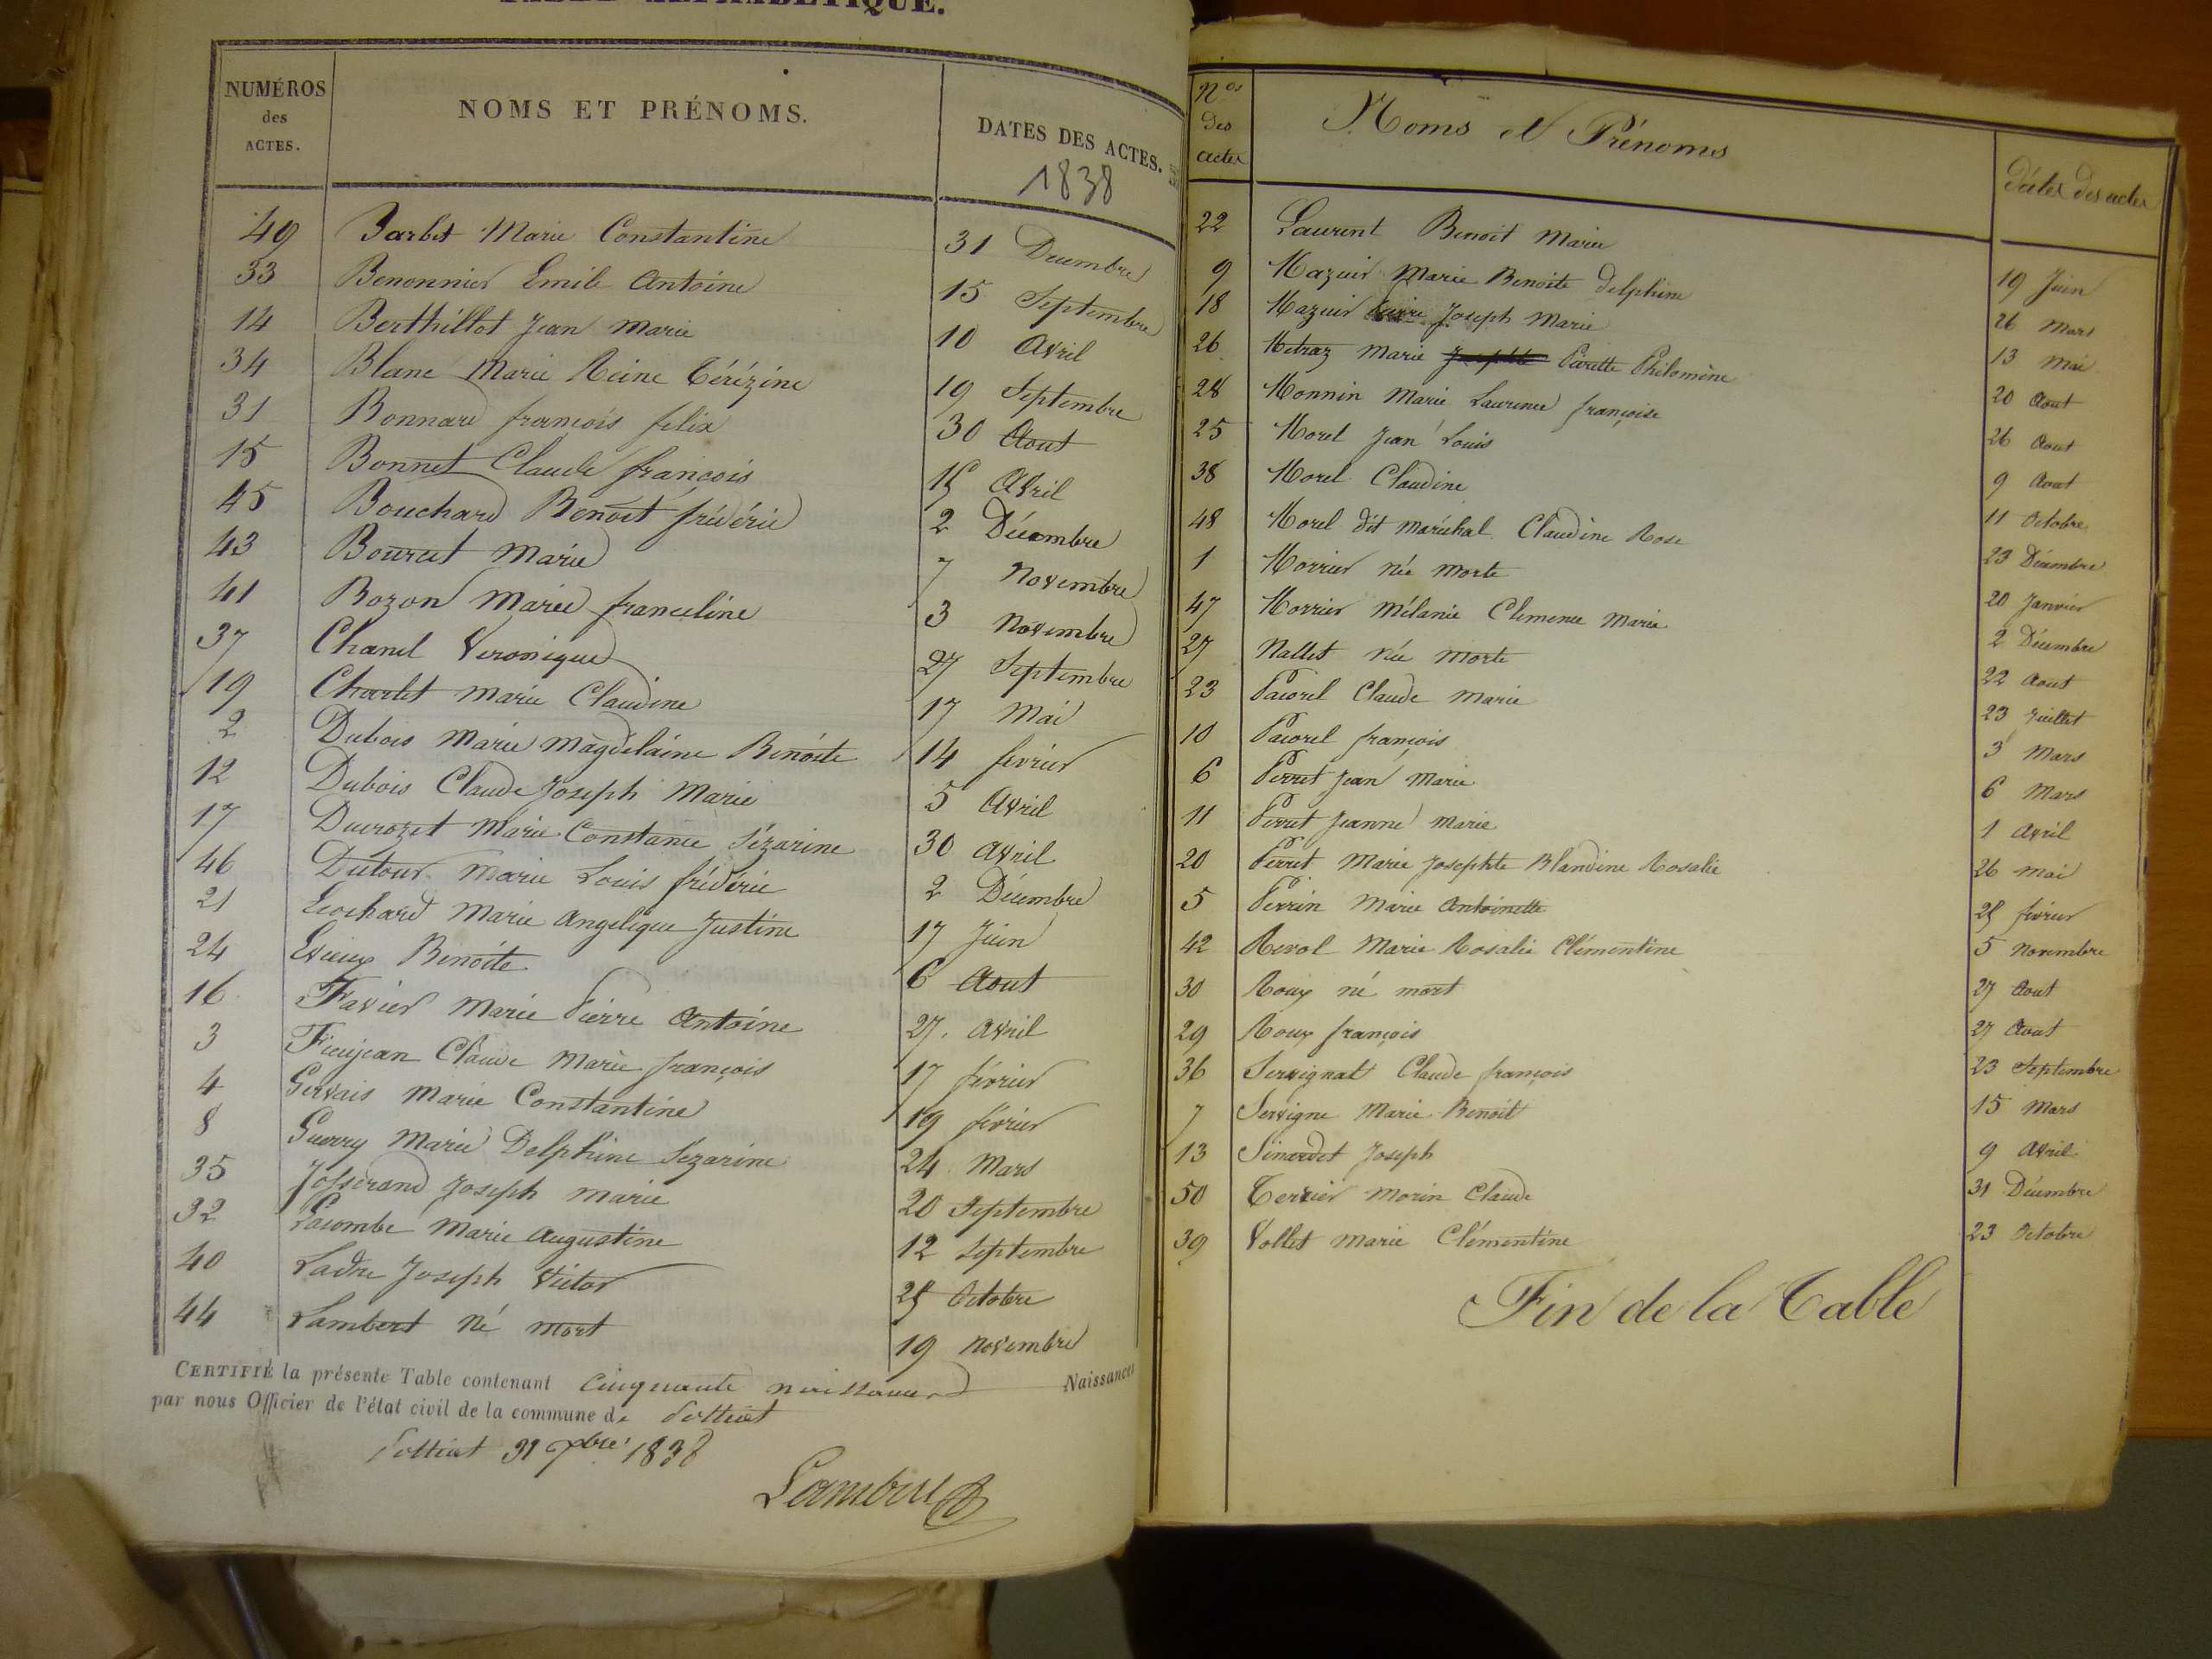 TABLE ALPHABÉTIQUE.
NUMÉROS des ACTES. NOMS ET PRÉNOMS. DATES DES ACTES.
1838
49 Barbet Marie Constantine 31 Decembre
33 Benonnier Emile Antoine 15 Septembre
14 Berthillot Jean Marie 10 Avril
34 Blanc Marie Reine Térézine 19 Septembre
31 Bonnard françois felix 30 Aout
15 Bonnet Claude françois 15 Avril
45 Bouchard Benoit frédéric 2 Décembre
43 Bourcet Marie 7 Novembre
41 Bozon Marie franceline 3 Novembre
37 Chanel Veronique 27 Septembre
19 Charlet Marie Claudine 17 Mai
2 Dubois Marie Magdelaine Benoite 14 fevrier
12 Dubois Claude Joseph Marie 5 Avril
17 Ducrozet Marie Constance Sézarine 30 Avril
46 Dutour Marie Louis frédéric 2 Décembre
21 Ecochard Marie Angelique Justine 17 Juin
24 Evieux Benoite 6 Aout
16 Favier Marie Pierre Antoine 27 Avril
3 Fieujean Claude Marie françois 17 février
4 Gervais Marie Constantine 19 février
8 Guerry Marie Delphine Sezarine 24 Mars
35 Josserand Joseph Marie 20 Septembre
32 Lacombe Marie Augustine 12 Septembre
40 Ladre Joseph Victor 25 Octobre
44 Lambert Né mort 19 Novembre
CERTIFIÉ la présente Table contenant Cinquante naissances Naissances
par nous Officier de l'état civil de la commune de
31 Xbre 1838
Lambert
Nos des actes Noms et Prénoms Dates des actes
22 Laurent Benoit Marie 19 Juin
9 Mazuir Marie Benoite Delphine 26 Mars
18 Mazuir Joseph Marie 13 Mai
26 Metraz Marie Josephte Pierette Philomène 20 Aout
28 Monnin Marie Laurence françoise 26 Aout
25 Morel Jean Louis 9 Aout
38 Morel Claudine 11 Octobre
48 Morel dit Maréchal Claudine Rose 23 Décembre
1 Morrier née morte 20 Janvier
47 Morrier Mélanie Clemence Marie 2 Décembre
27 Nallet née morte 22 Aout
23 Pacorel Claude Marie 23 Juillet
10 Pacorel françois 3 Mars
6 Perret Jean Marie 6 Mars
11 Perret Jeanne Marie 1 Avril
20 Perret Marie Josephte Blandine Rosalie 26 Mai
5 Perrin Marie Antoinette 25 février
42 Revol Marie Rosalie Clémentine 5 Novembre
30 Roux né mort 27 Aout
29 Roux françois 27 Aout
36 Servignat Claude françois 23 Septembre
7 Servigne Marie Benoit 15 Mars
13 Sinardet Joseph 9 Avril
50 Terrier Morin Claude 31 Décembre
39 Vollet Marie Clémentine 23 Octobre
Fin de la Table